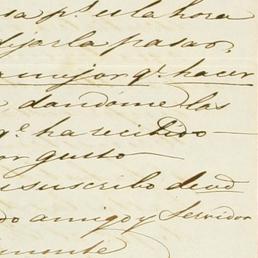 sa p.ª la hora
dejarla pasar,
mejor q.ᵉ hacer
, dandome las
q.ᵉ ha recibido
or gusto
suscribo de vd
do amigo y servidor